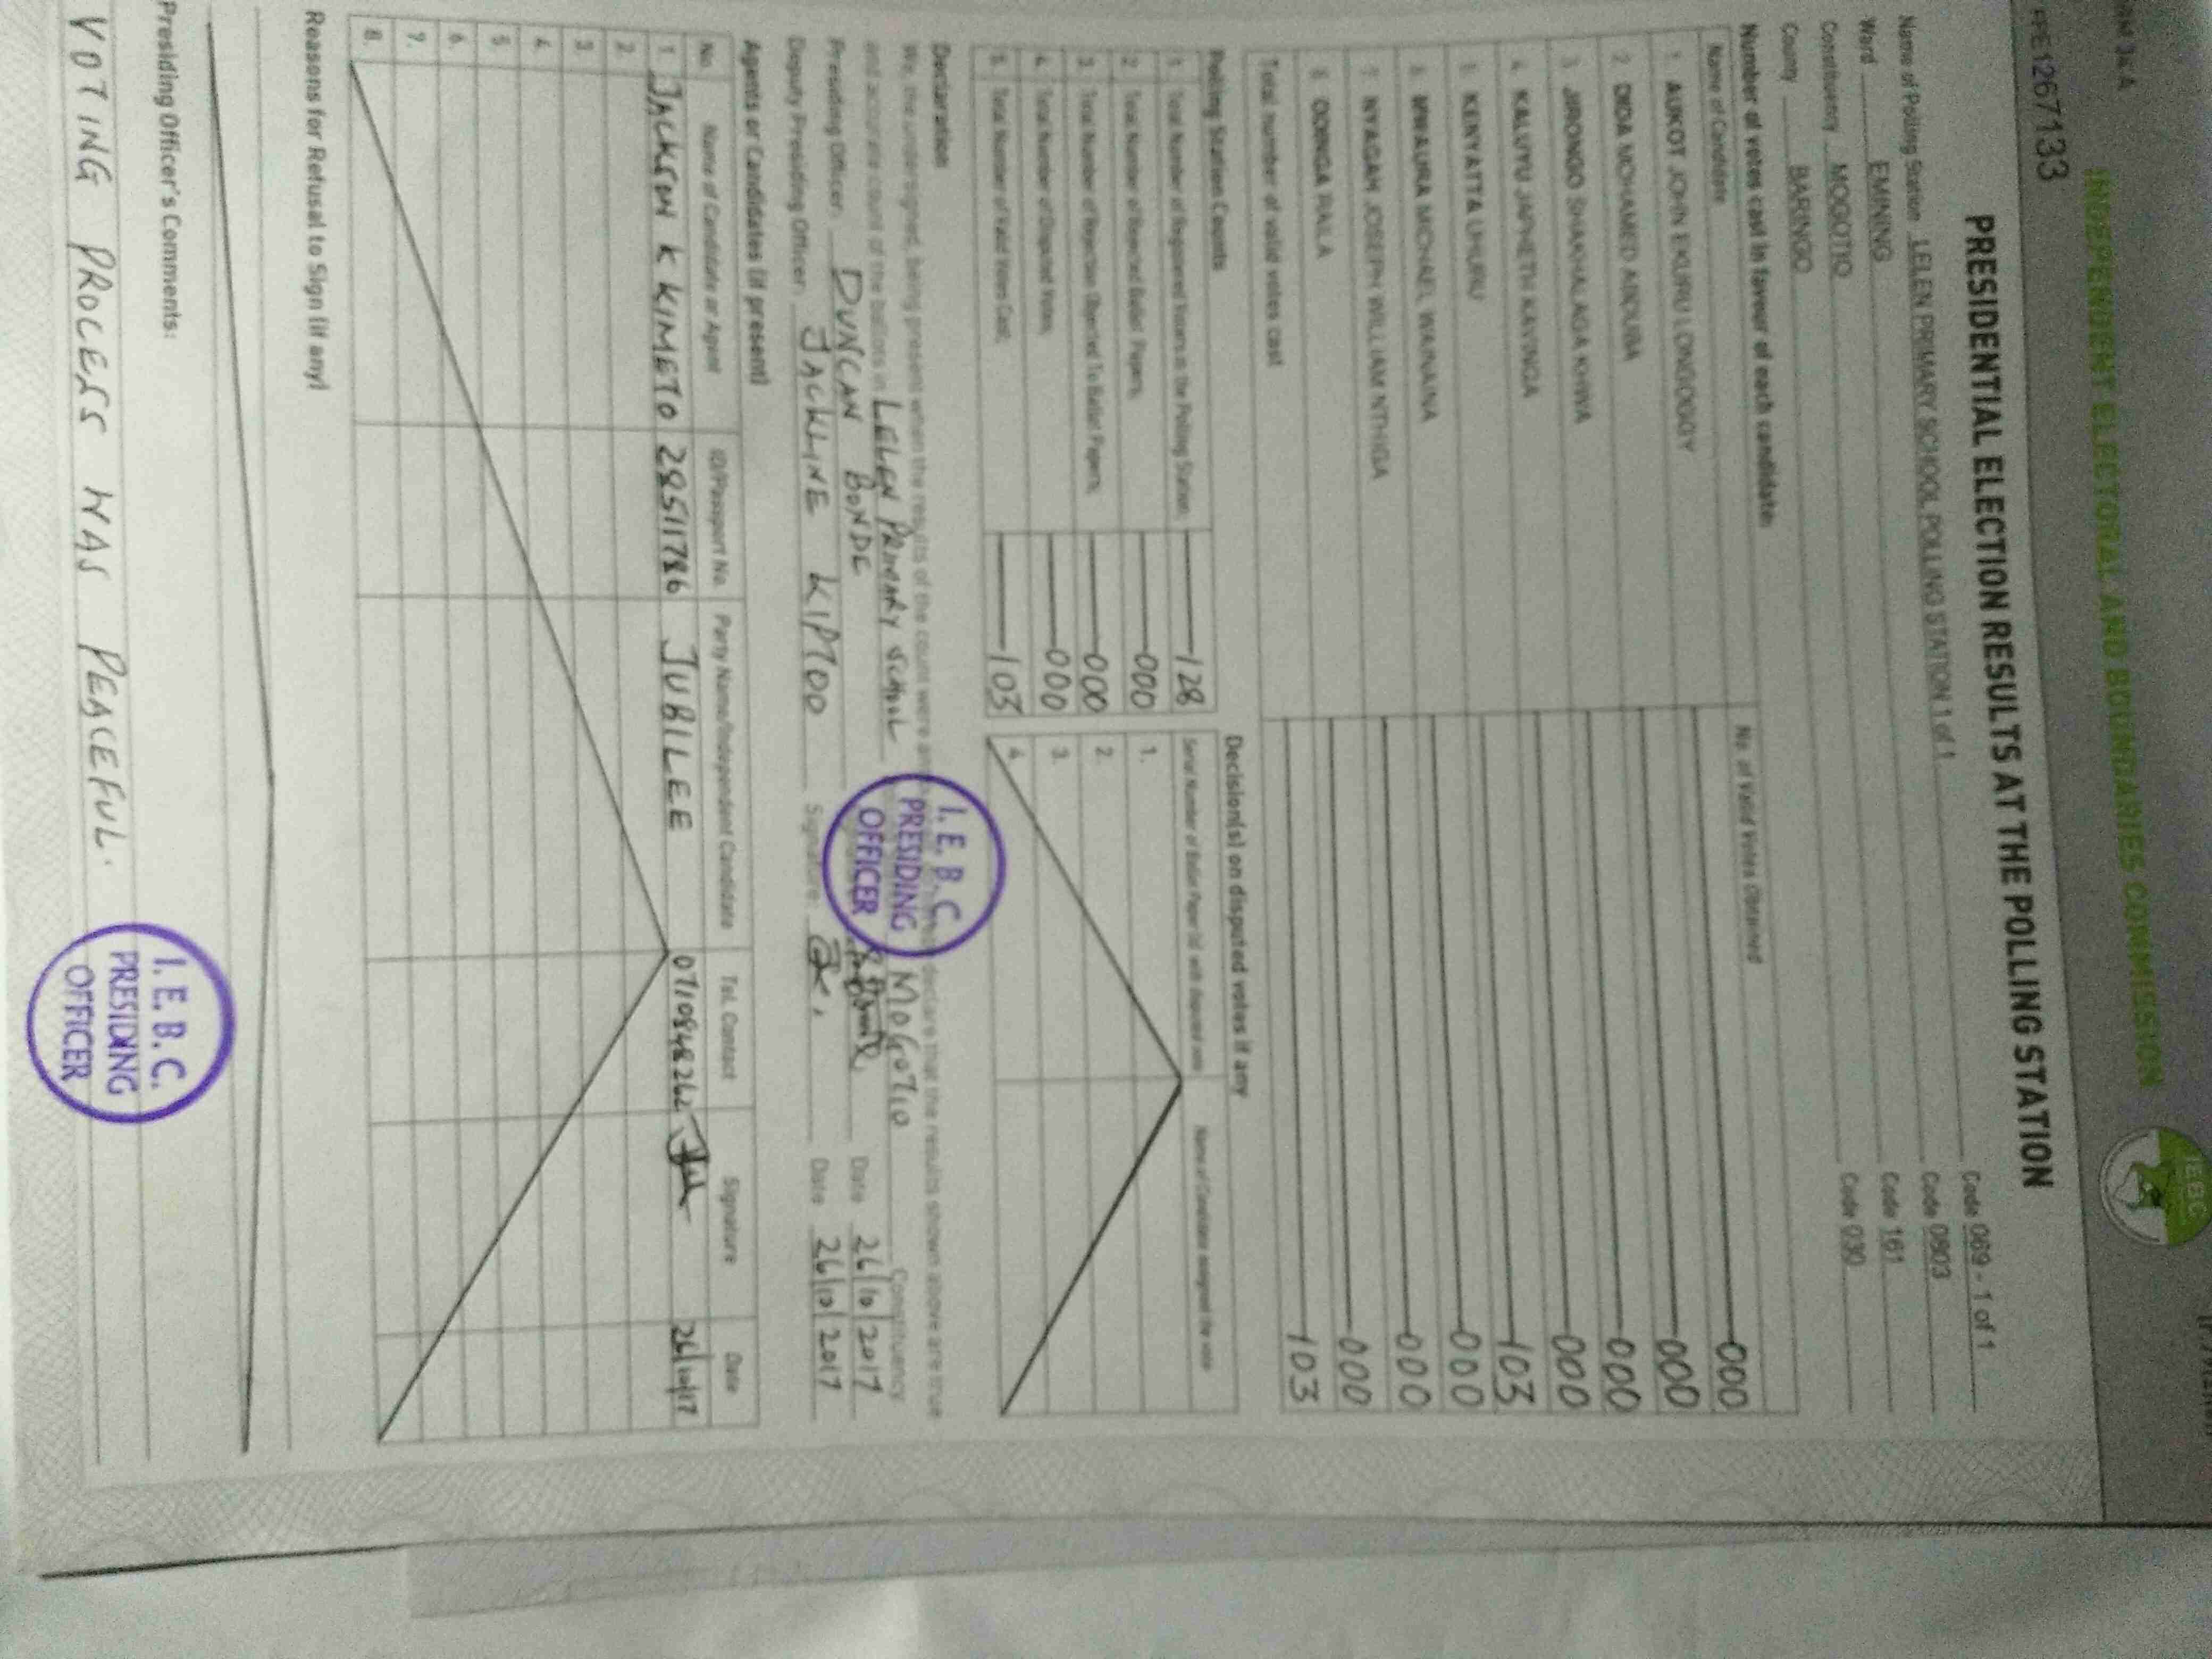 RM 34 A
INDEPENDENT ELECTORAL AND BOUNDARIES COMMISSION
IEBC
PE1267133
PRESIDENTIAL ELECTION RESULTS AT THE POLLING STATION
Name of Polling Station LELEN PRIMARY SCHOOL POLLING STATION 1 of 1 Code 069 - 1 of 1
Ward EMINING Code 0803
Constituency MOGOTIO Code 161
County BARINGO Code 030
Number of votes cast in favor of each candidate:
Name of Candidate No. of Valid Votes Obtained
1. AUKOT JOHN EKURU LONGOGGY 000
2. DIDA MOHAMED ABDUBA 000
3. JIRONGO SHAKHALAGA KHWA 000
4. KALUYU JAPHETH KAVINGA 000
5. KENYATTA UHURU 103
6. MWAURA MICHAEL WAINAINA 000
7. NYAGAH JOSEPH WILLIAM NTHIGA 000
8. ODINGA RAILA 000
Total number of valid votes cast 103
Polling Station Counts
1. Total Number of Registered Voters in the Polling Station 128
2. Total Number of Rejected Ballot Papers 000
3. Total Number of Rejection Objected To Ballot Papers 000
4. Total Number of Disputed Votes 000
5. Total Number of Valid Votes Cast 103
Decision(s) on disputed votes if any
Serial Number of Ballot Paper (s) with disputed vote Name of Candidate assigned the vote
1.
2.
3.
4.
Declaration
We, the undersigned, being present when the results of the count were declare that the results shown above are true
and accurate count of the ballots in LELEN PRIMARY SCHOOL MOGOTIO Constituency
Presiding Officer: DUNCAN BONDE Date 26/10/2017
Deputy Presiding Officer: JACKLINE KIPTOO Signature Date 26/10/2017
I.E.B.C.
PRESIDING
OFFICER
Agents or Candidates (if present)
No. Name of Candidate or Agent ID/Passport No. Party Name/Independent Candidate Tel. Contact Signature Date
1. JACKSON K KIMETO 28511786 JUBILEE 0710848262 26/10/17
2.
3.
4.
5.
6.
7.
8.
Reasons for Refusal to Sign (if any)
Presiding Officer's Comments:
VOTING PROCESS WAS PEACEFUL.
I.E.B.C.
PRESIDING
OFFICER